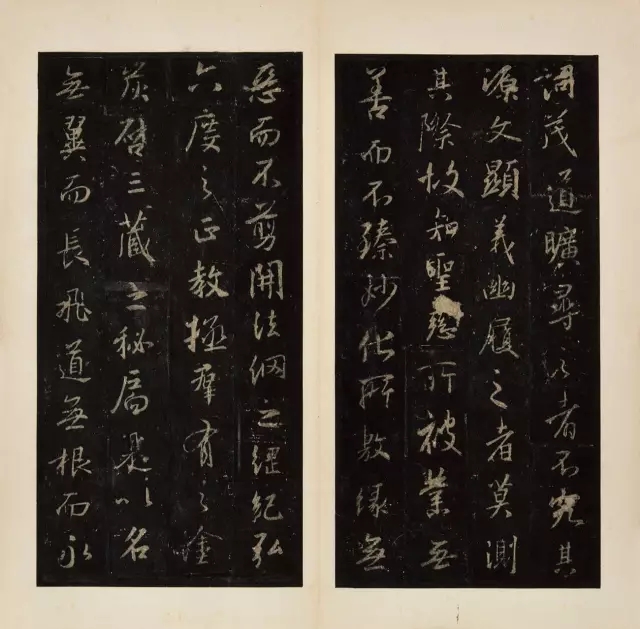 詞茂道曠尋之者不究其
源文顯義幽履之者莫測
其際故知聖慈所被業無
善而不臻妙化所敷緣無
惡而不剪開法網之綱紀弘
六度之正教拯群有之塗
炭啓三藏之秘扃是以名
無翼而長飛道無根而永